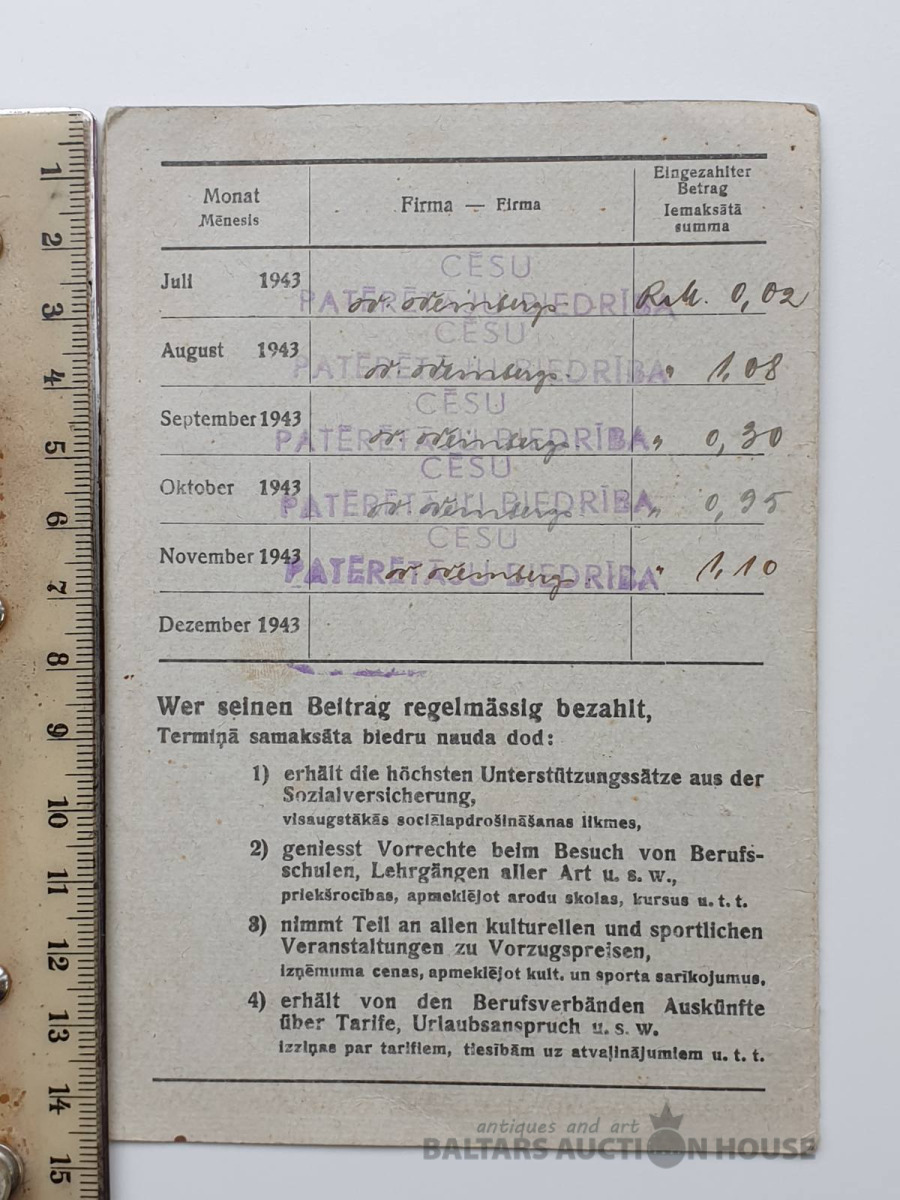 Monat
Mēnesis
Firma — Firma
Eingezahlter
Betrag
Iemaksātā
summa
Juli 1943
CĒSU
PATĒRĒTĀJU BIEDRĪBA
RM. 0,02
August 1943
CĒSU
PATĒRĒTĀJU BIEDRĪBA
" 1,08
September 1943
CĒSU
PATĒRĒTĀJU BIEDRĪBA
" 0,30
Oktober 1943
CĒSU
PATĒRĒTĀJU BIEDRĪBA
" 0,95
November 1943
CĒSU
PATĒRĒTĀJU BIEDRĪBA
" 1,10
Dezember 1943
Wer seinen Beitrag regelmässig bezahlt,
Termiņā samaksāta biedru nauda dod:
1) erhält die höchsten Unterstützungssätze aus der
Sozialversicherung,
visaugstākās sociālapdrošināšanas likmes,
2) geniesst Vorrechte beim Besuch von Berufs-
schulen, Lehrgängen aller Art u. s. w.,
priekšrocības, apmeklējot arodu skolas, kursus u. t. t.
3) nimmt Teil an allen kulturellen und sportlichen
Veranstaltungen zu Vorzugspreisen,
izņēmuma cenas, apmeklējot kult. un sporta sarīkojumus,
4) erhält von den Berufsverbänden Auskünfte
über Tarife, Urlaubsanspruch u. s. w.
izziņas par tarifiem, tiesībām uz atvaļinājumiem u. t. t.
1
2
3
4
5
6
7
8
9
10
11
12
13
14
15
antiques and art
BALTARS AUCTION HOUSE